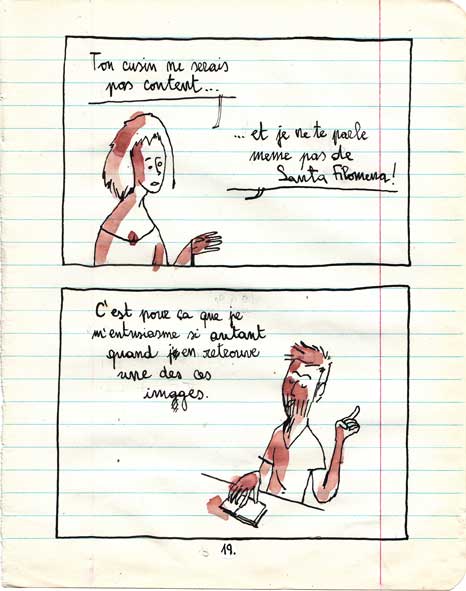 Ton cusin ne serais
pas content...
... et je ne te parle
meme pas de
Santa Filomena!
C'est pour ça que je
m'entusiasme si autant
quand j'en retrouve
une des ces
images.
19.